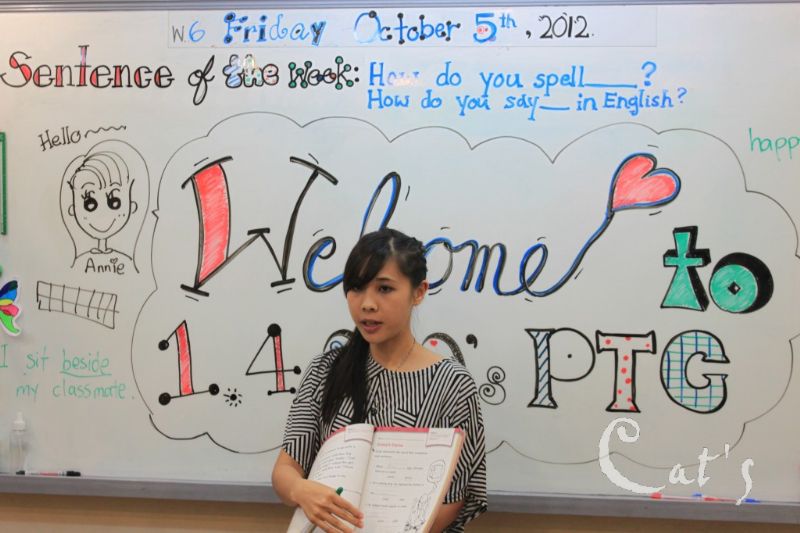 W.6 Friday October 5th, 2012.
Sentence of the Week: How do you spell____?
How do you say__ in English?
Hello
happ
Welcome
to
Annie
1.4
's PTC
I sit beside
my classmate.
Cat's